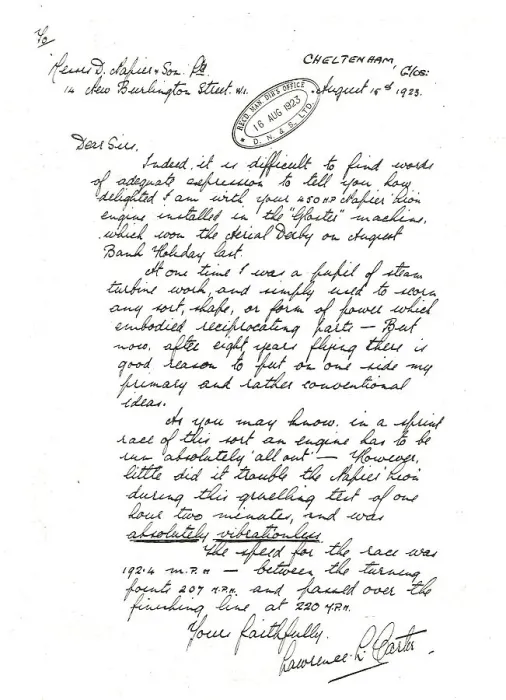 To
Messrs D. Napier & Son. Ltd.
14 New Burlington Street. W1.
CHELTENHAM,
Glos:
August 15th 1923.
RECD. MAN. DIR'S OFFICE
16 AUG 1923
D. N & S. LTD.
Dear Sirs.
Indeed, it is difficult to find words
of adequate expression to tell you how
delighted I am with your 450 H.P Napier Lion
engine installed in the "Gloster" machine,
which won the Aerial Derby on August
Bank Holiday last.
At one time I was a pupil of steam
turbine work, and simply used to scorn
any sort, shape, or form of power which
embodied reciprocating parts — But
now, after eight years flying there is
good reason to put on one side my
primary and rather conventional
ideas.
As you may know, in a sprint
race of this sort an engine has to be
run absolutely 'all out' — However,
little did it trouble the Napier Lion
during this gruelling test of one
hour two minutes, and was
absolutely vibrationless.
The speed for the race was
192.4 M.P.H — between the turning
points 207 M.P.H. and passed over the
finishing line at 220 M.P.H.
Yours faithfully.
Lawrence L. Carter